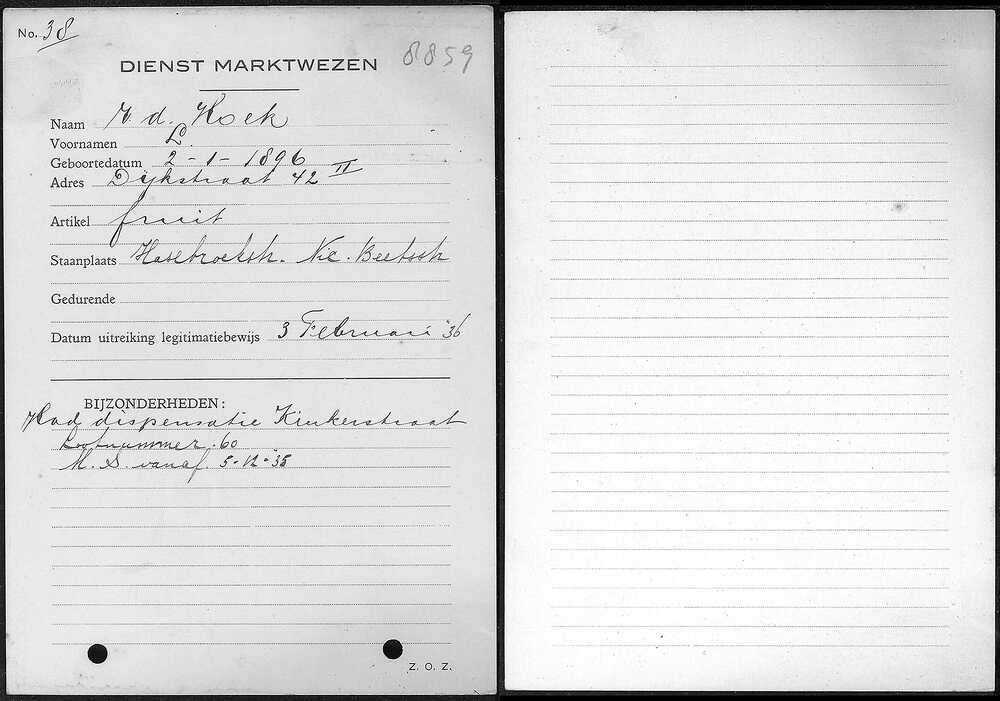 No. 38
8859
DIENST MARKTWEZEN
Naam v. d. Hoek
Voornamen L.
Geboortedatum 2-1-1896
Adres Dijkstraat 42 II
Artikel fruit
Staanplaats Hasebroekstr. Nic. Beetsstr
Gedurende
Datum uitreiking legitimatiebewijs 3 Februari '36
BIJZONDERHEDEN:
Had dispensatie Kinkerstraat
Lootnummer 60
M. S. vanaf 5-12-35
Z. O. Z.